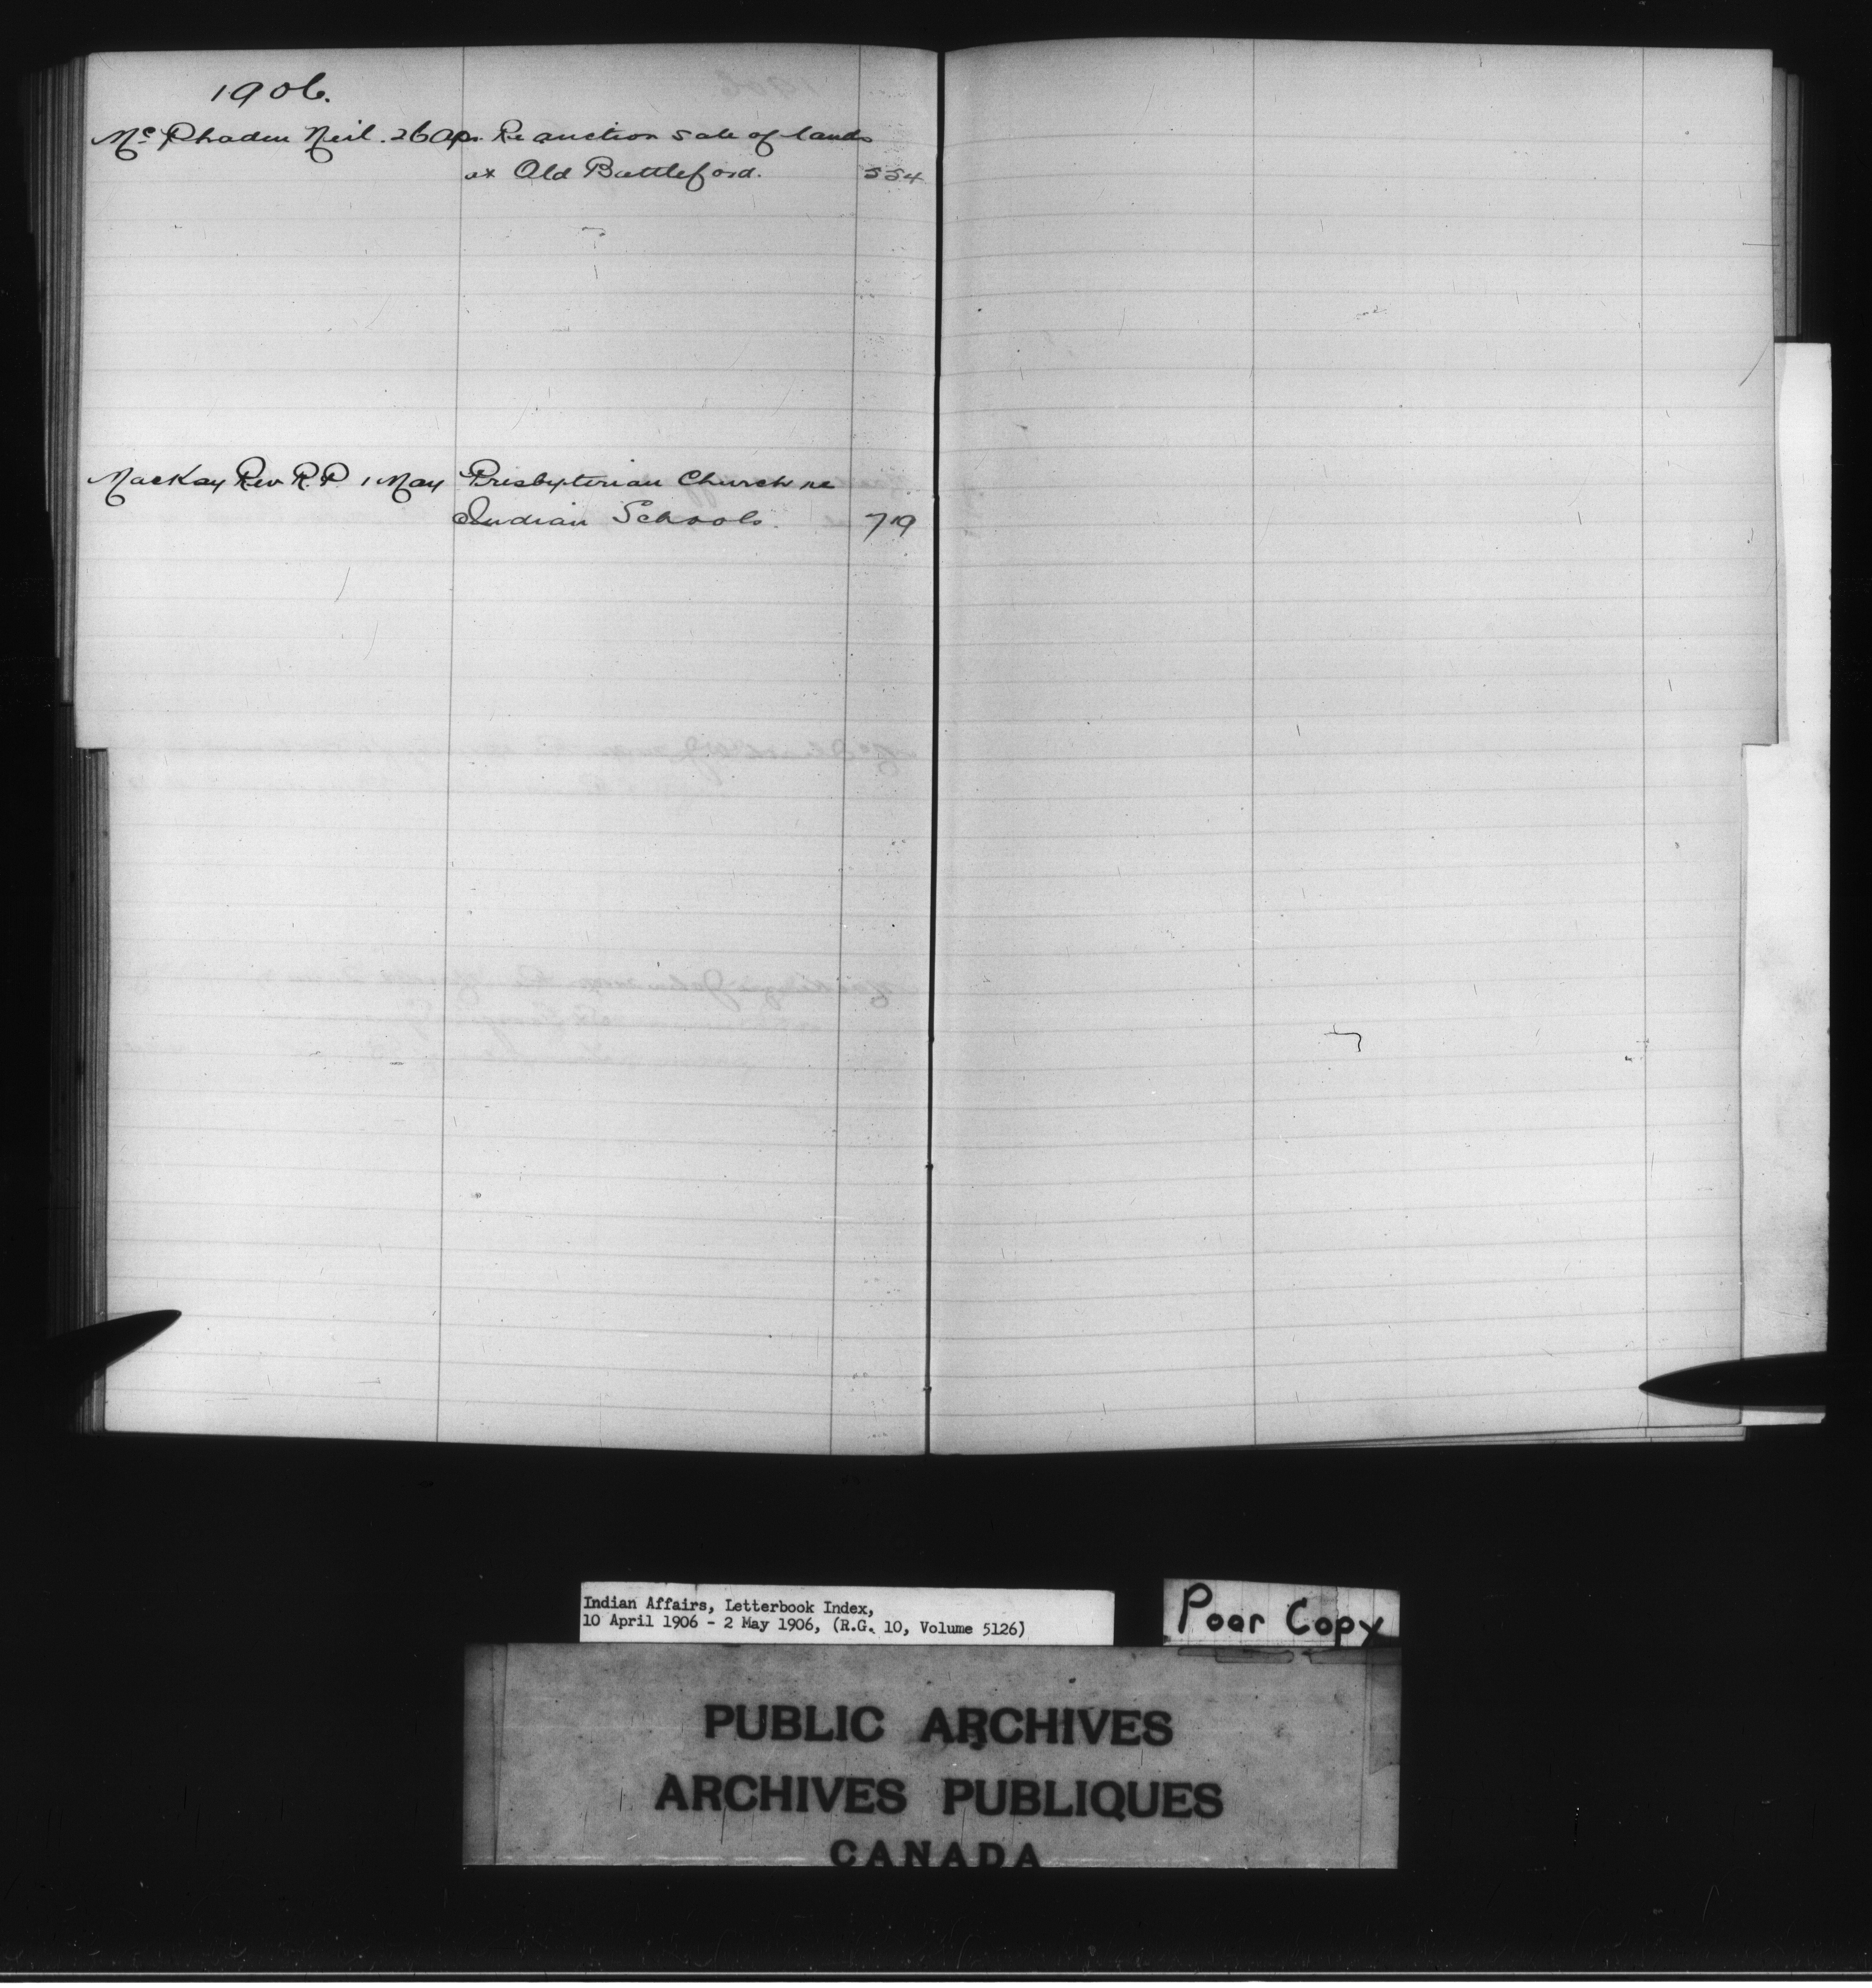 1906.
McPhaden Neil. 26 Apr. Re auction sale of lands
at Old Battleford. 554
MacKay Rev R.P. 1 May Presbyterian Church re
Indian Schools. 719
Indian Affairs, Letterbook Index,
10 April 1906 - 2 May 1906, (R.G. 10, Volume 5126)
Poor Copy
PUBLIC ARCHIVES
ARCHIVES PUBLIQUES
CANADA